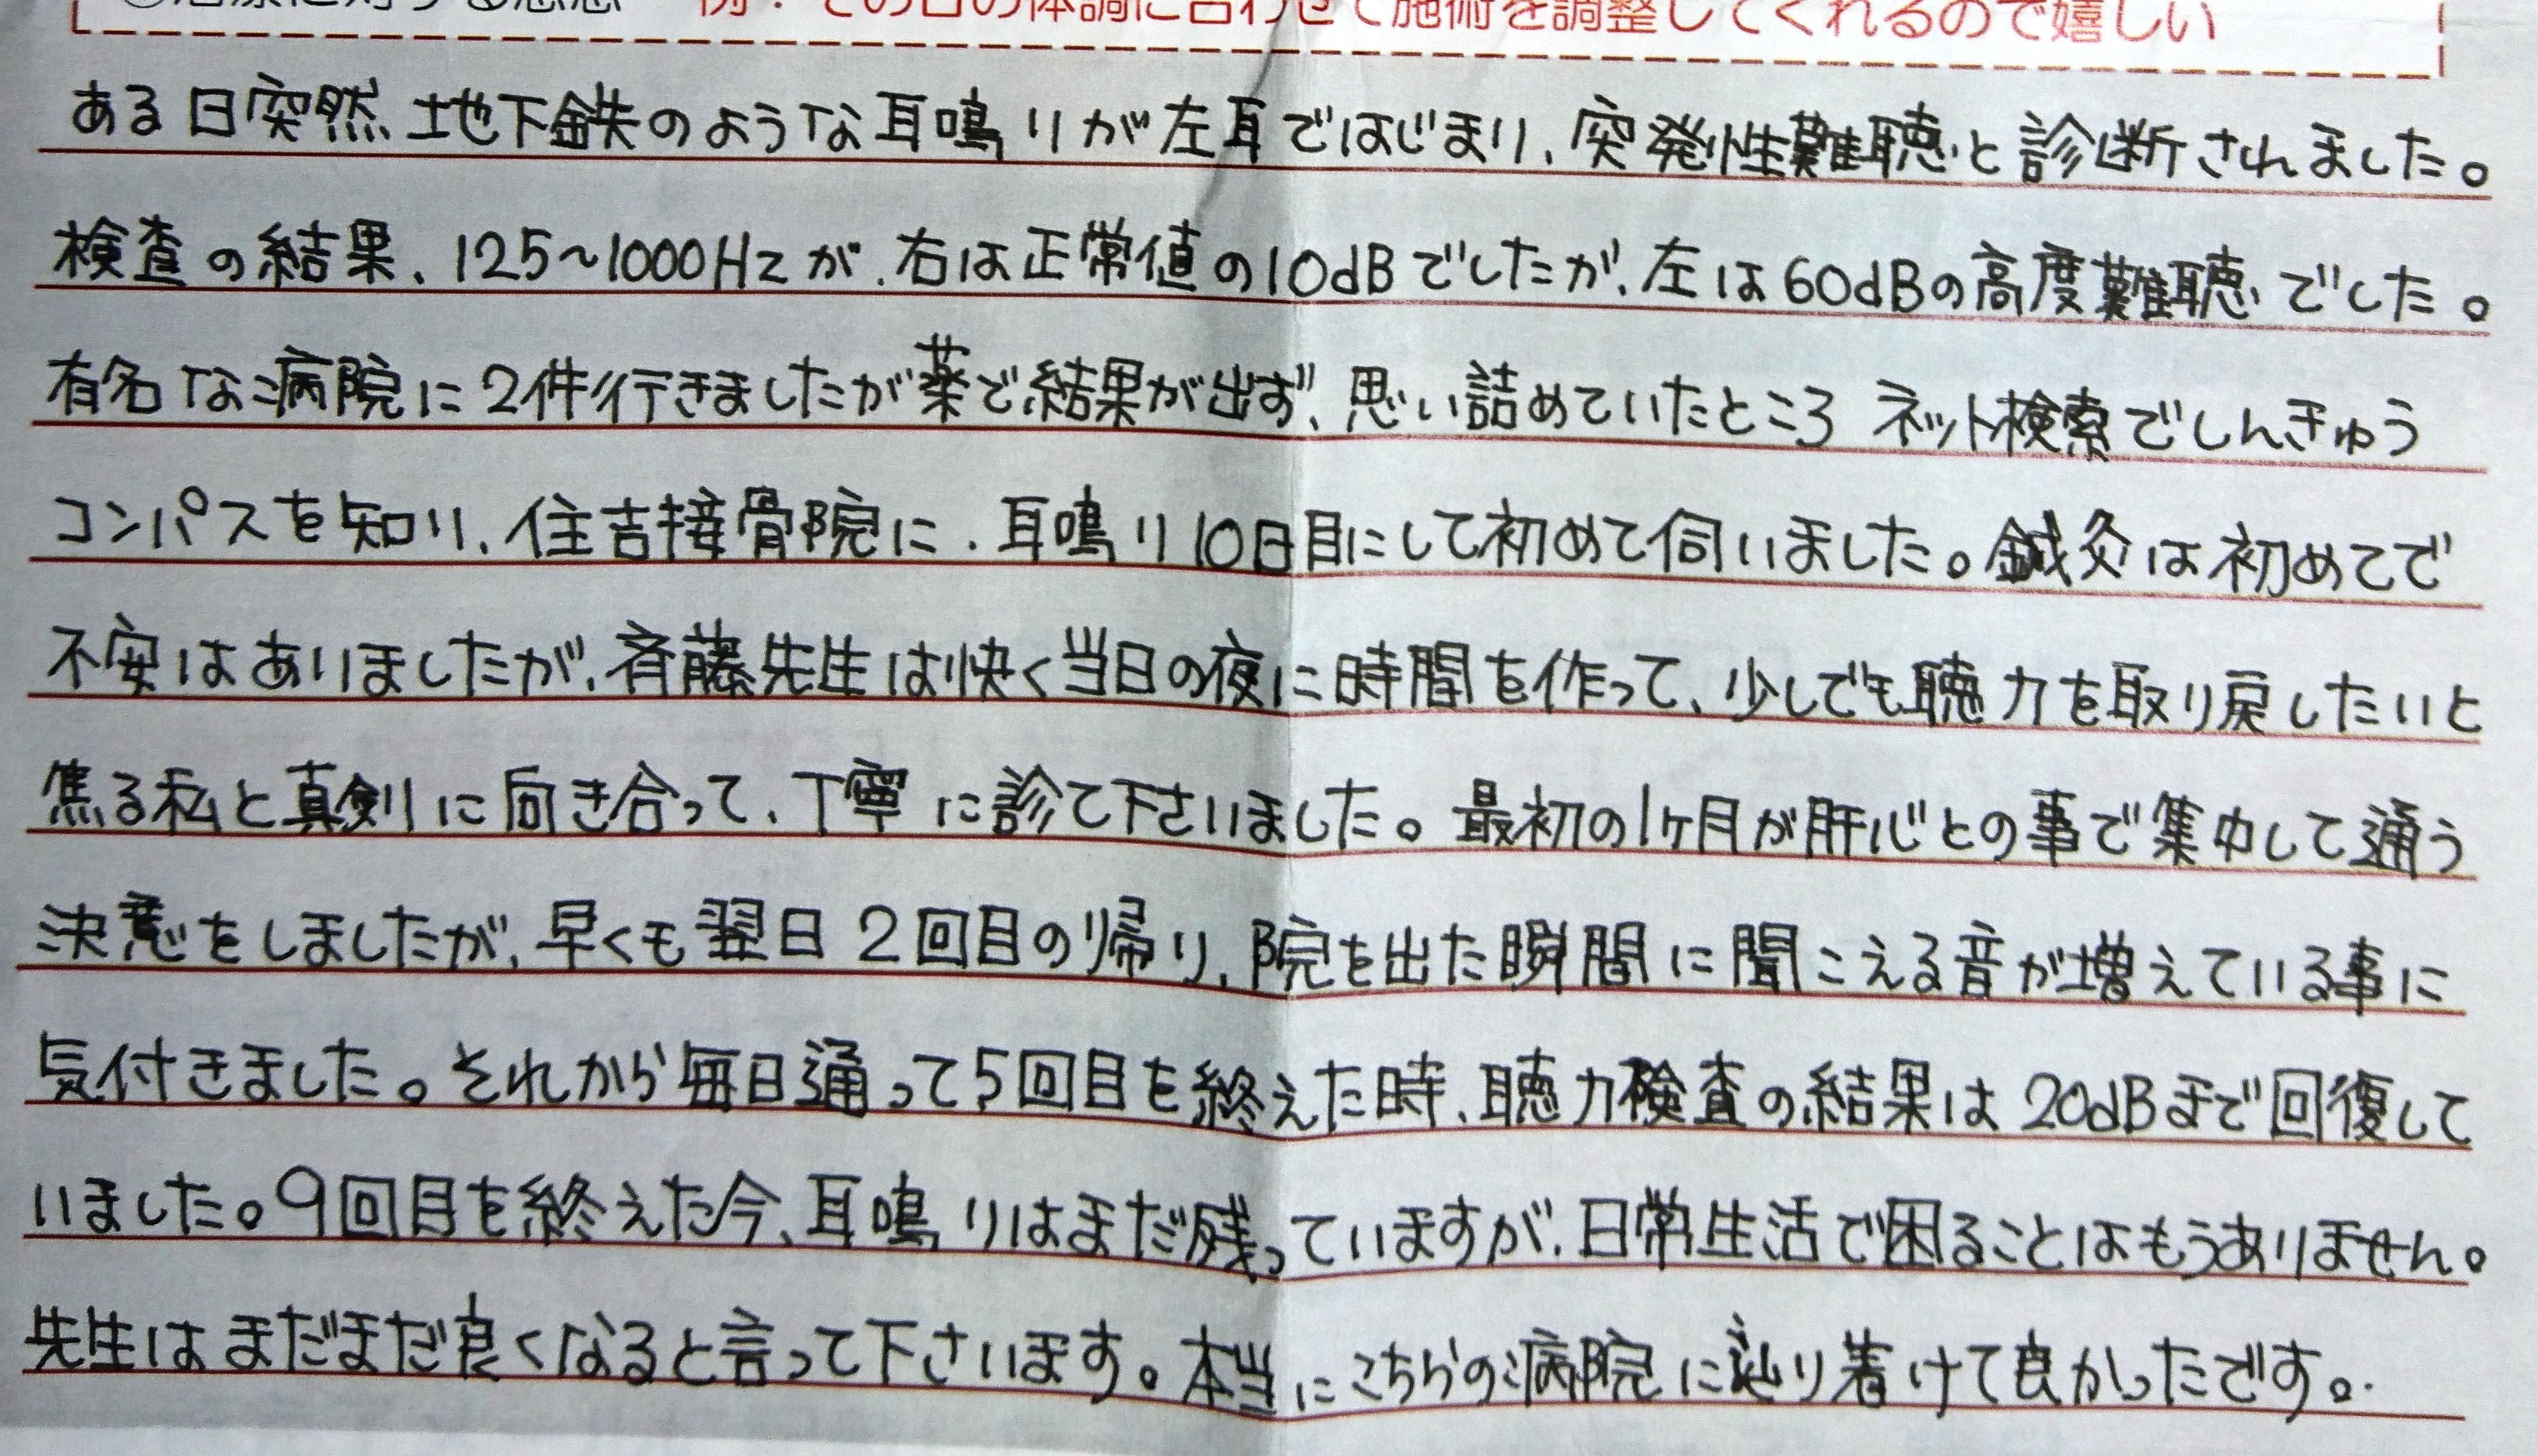 治療に対する感想 例：その日の体調に合わせて施術を調整してくれるので嬉しい
ある日突然地下鉄のような耳鳴りが左耳ではじまり、突発性難聴と診断されました。
検査の結果、125~1000Hzが、右は正常値の10dBでしたが、左は60dBの高度難聴でした。
有名な病院に2件行きましたが薬で結果が出ず、思い詰めていたところ ネット検索でしんきゅう
コンパスを知り、住吉接骨院に、耳鳴り10日目にして初めて伺いました。鍼灸は初めてで
不安はありましたが、斉藤先生は快く当日の夜に時間を作って、少しでも聴力を取り戻したいと
焦る私と真剣に向き合って、丁寧に診て下さいました。最初の1ヶ月が肝心との事で集中して通う
決意をしましたが、早くも翌日2回目の帰り、院を出た瞬間に聞こえる音が増えている事に
気付きました。それから毎日通って5回目を終えた時、聴力検査の結果は20dBまで回復して
いました。9回目を終えた今、耳鳴りはまだ残っていますが、日常生活で困ることはもうありません。
先生はまだまだ良くなると言って下さいます。本当にこちらの病院に辿り着けて良かったです。